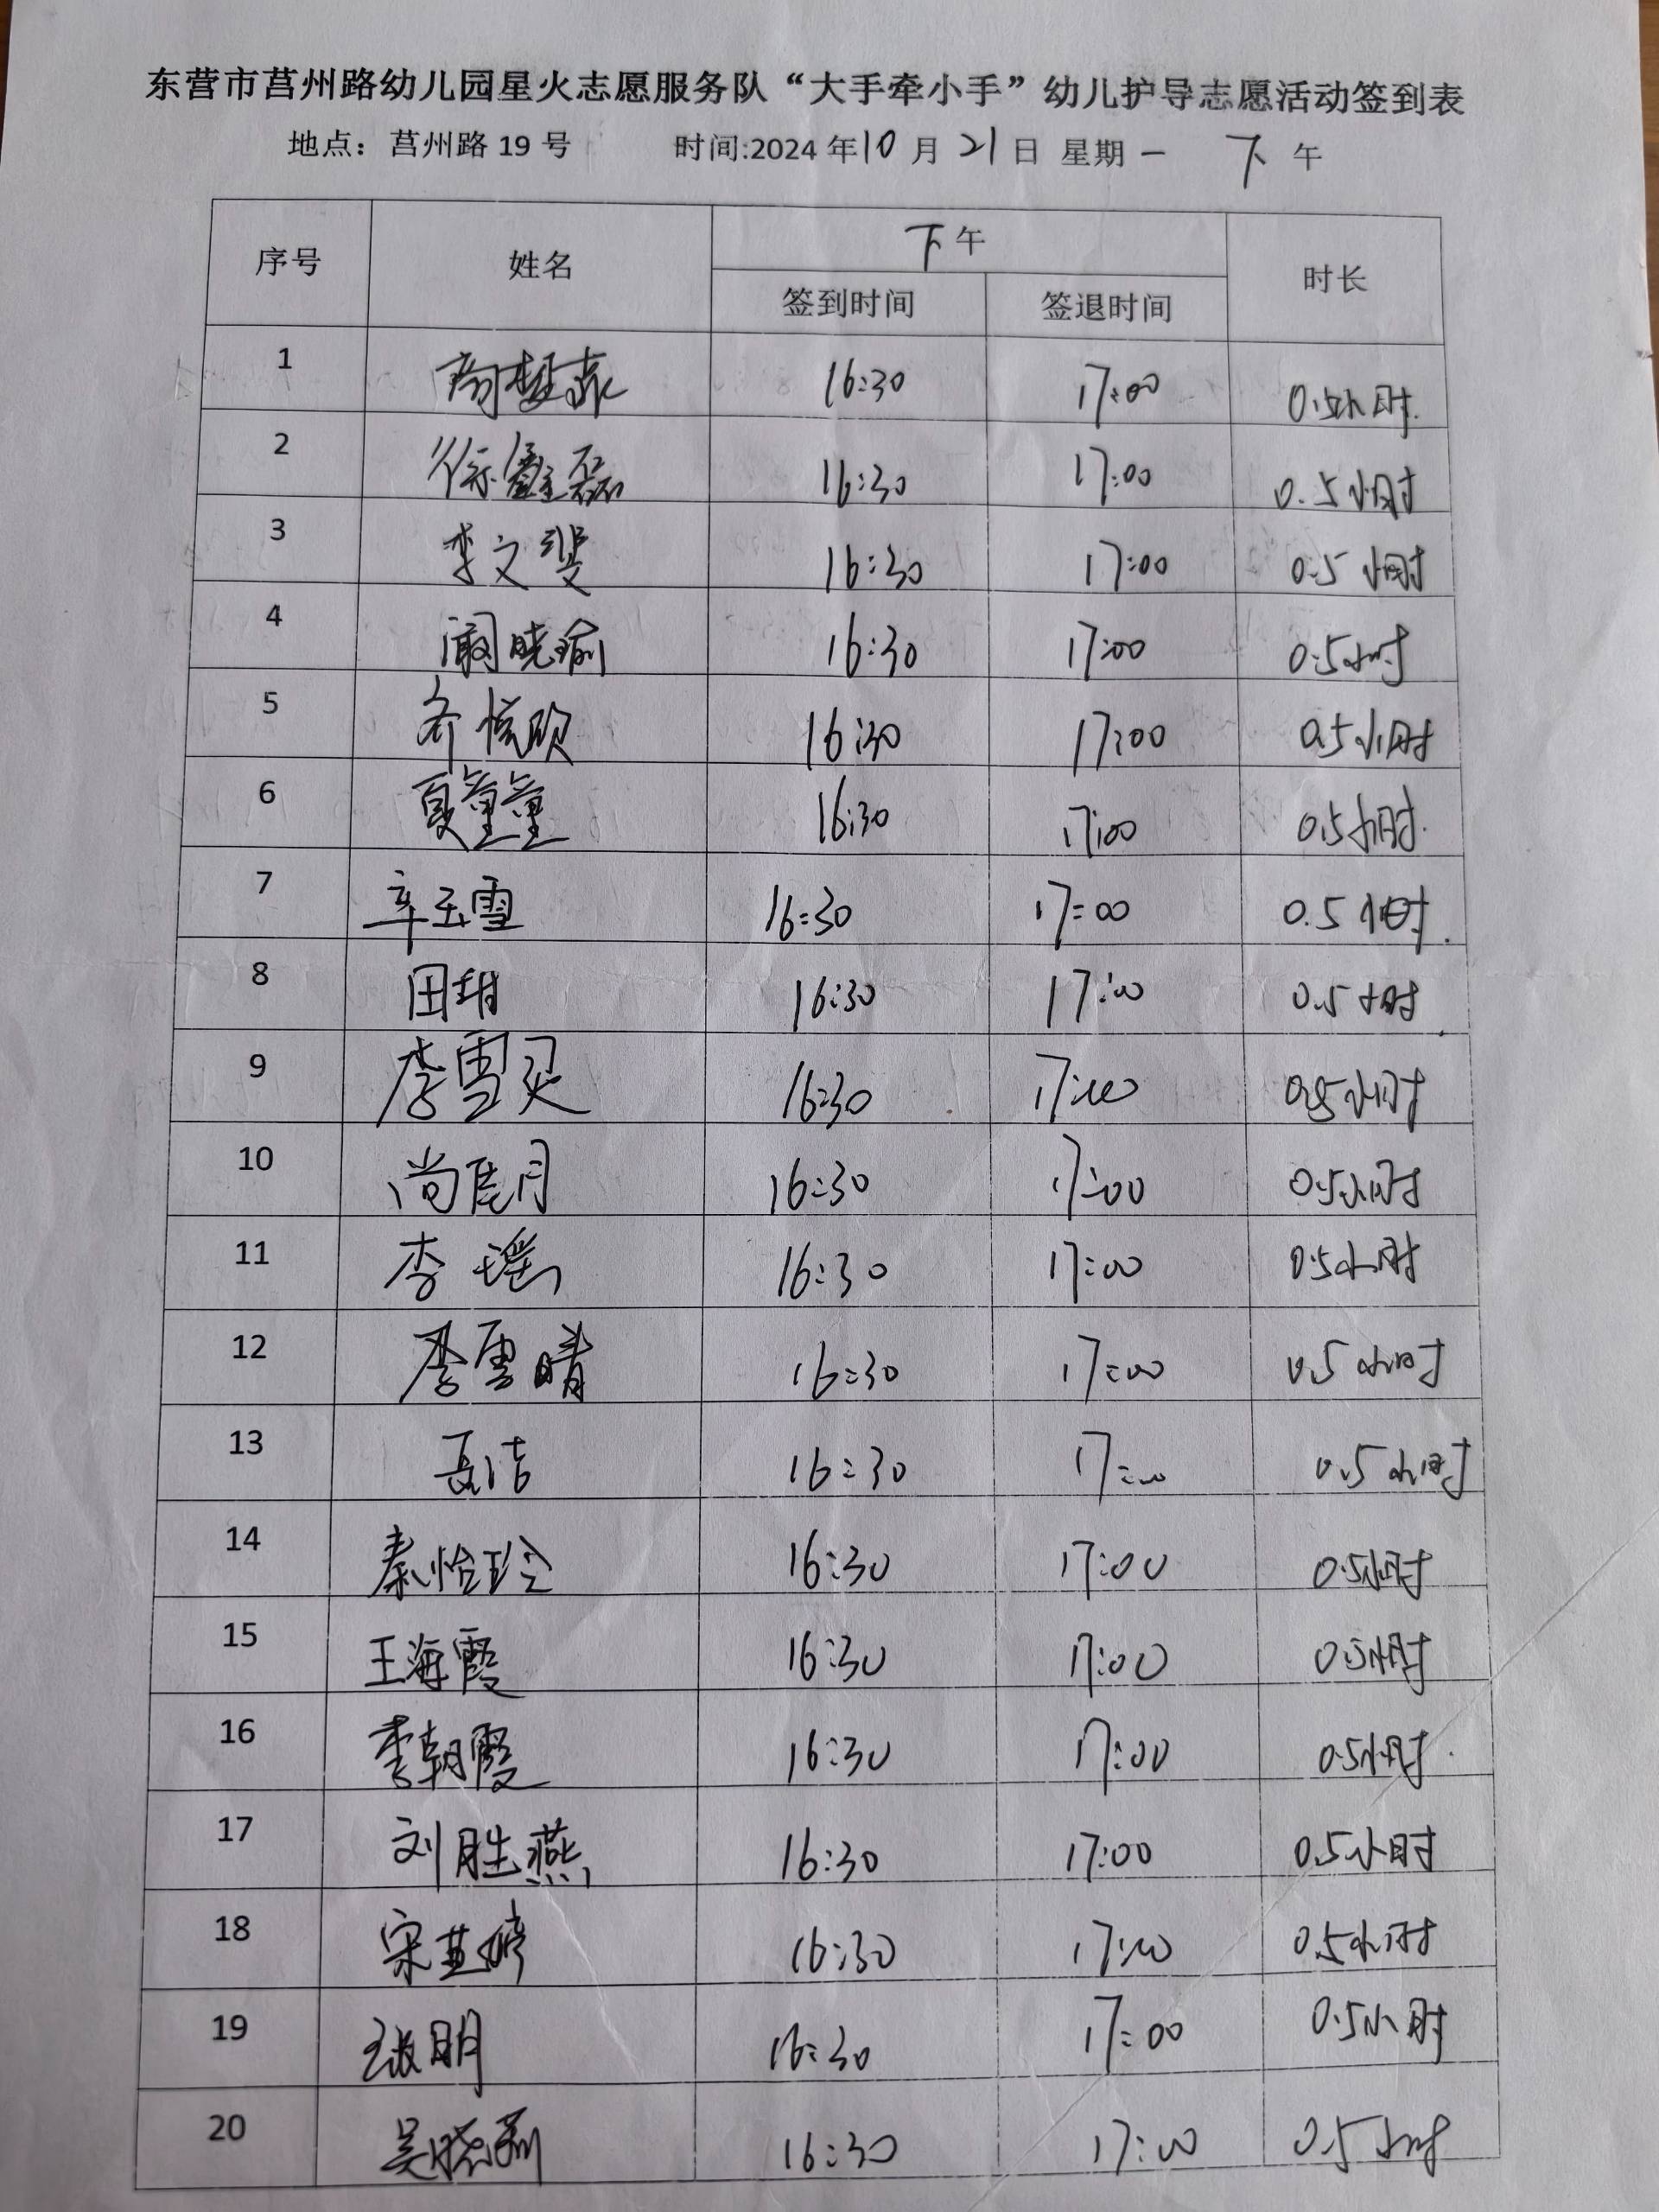 东营市莒州路幼儿园星火志愿服务队“大手牵小手”幼儿护导志愿活动签到表
地点：莒州路 19 号 时间:2024 年 10 月 21 日 星期 一 下 午
序号 姓名 下午 时长
签到时间 签退时间
1 16:30 17:00 0.5小时
2 16:30 17:00 0.5小时
3 李文斐 16:30 17:00 0.5小时
4 阚晓瑜 16:30 17:00 0.5小时
5 齐悦欣 16:30 17:00 0.5小时
6 夏童童 16:30 17:00 0.5小时
7 辛玉雪 16:30 17:00 0.5小时
8 田甜 16:30 17:00 0.5小时
9 李雪灵 16:30 17:00 0.5小时
10 尚佳月 16:30 17:00 0.5小时
11 李瑶 16:30 17:00 0.5小时
12 李雪晴 16:30 17:00 0.5小时
13 聂洁 16:30 17:00 0.5小时
14 秦怡玲 16:30 17:00 0.5小时
15 王海霞 16:30 17:00 0.5小时
16 李朝霞 16:30 17:00 0.5小时
17 刘胜燕 16:30 17:00 0.5小时
18 宋燕婷 16:30 17:00 0.5小时
19 16:30 17:00 0.5小时
20 吴晓莉 16:30 17:00 0.5小时